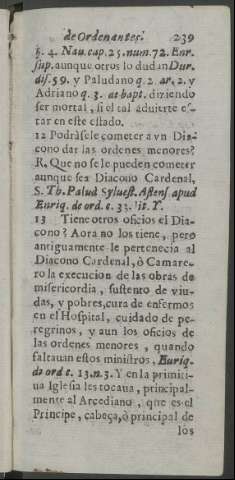 de Ordenantes. 239
§. 4. Nau. cap. 25. num. 72. Enr.
sup. aunque otros lo dudan Dur.
dis. 59. y Paludano q. 2. ar. 2. y
Adriano q. 3. at bapt. diziendo
ser mortal, si el tal aduierte es-
tar en este estado.
12 Podràsele cometer a vn Dia-
cono dar las ordenes menores?
R. Que no se le pueden cometer
aunque sea Diacono Cardenal,
S. Th. Palud Sylvest. Astens. apud
Enriq. de ord. c. 33. lit. Y.
13 Tiene otros oficios el Dia-
cono? Aora no los tiene, pero
antiguamente le pertenecia al
Diacono Cardenal, ò Camare-
ro la execucion de las obras de
misericordia, sustento de viu-
das, y pobres, cura de enfermos
en el Hospital, cuidado de pe-
regrinos, y aun los oficios de
las ordenes menores, quando
faltauan estos ministros, Euriq.
de ord c. 13. n. 3. Y en la primiti-
ua Iglesia les tocaua, principal-
mente al Arcediano, que es el
Principe, cabeça, ò principal de
los